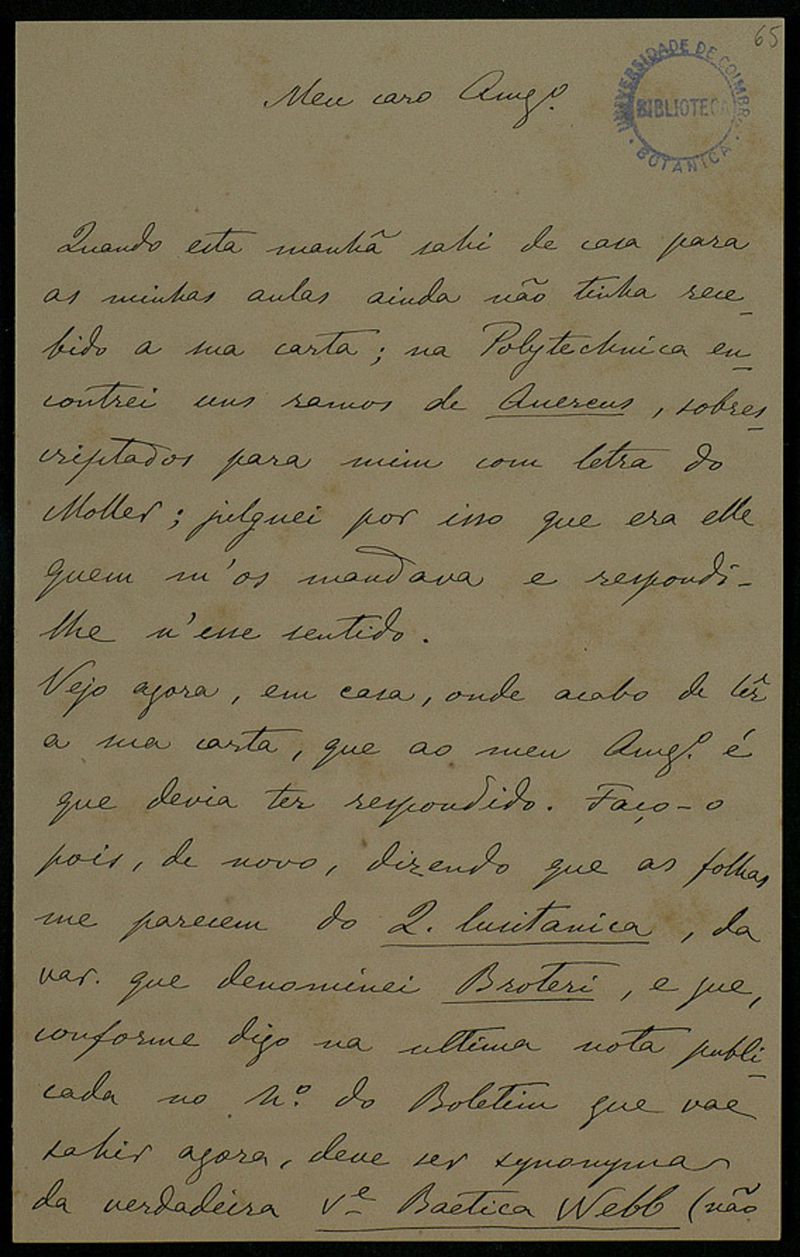 65
UNIVERSIDADE DE COIMBRA
BIBLIOTECA
BOTANICA
Meu caro Amgº.
Quando esta manhã sahi de casa para
as minhas aulas ainda não tinha rece-
bido a sua carta; na Polytechnica en-
contrei uns ramos de Quercus, sobres-
criptados para mim com letra do
Moller; julguei por isso que era elle
quem m'os mandava e respondi-
lhe n'esse sentido.
Vejo agora, em casa, onde acabo de lêr
a sua carta, que ao meu Amgº. é
que devia ter respondido. Faço-o
pois, de novo, dizendo que as folhas
me parecem do Q. lusitanica, da
var. que denominei Broteri, e que,
conforme digo na ultima nota publi-
cada no Nº. do Boletim que vae
sahir agora, deve ser synonyma
da verdadeira vᵉ Baetica Webb (não